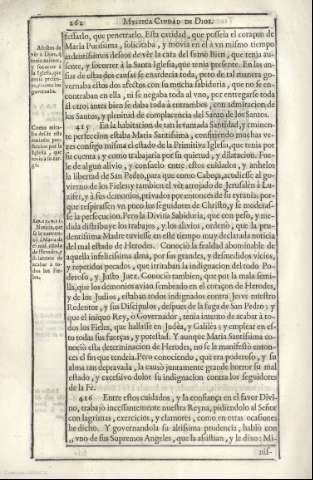 262 MYSTICA CIUDAD DE DIOS.
festarlo, que penetrarlo. Esta caridad, que posseia el coraçon de
Maria Purissima, solicitaba, y movia en el à vn mismo tiempo
ardentissimos deseos de vèr la cara del sumo Bien, que tenia au-
sente, y socorrer à la Santa Iglesia, que tenia presente. En las an-
sias de estas dos causas se enardecia toda, pero de tal manera go-
vernaba estos dos afectos con su mucha sabiduria, que no se en-
contraban en ella, ni se negaba toda al vno, por entregarse toda
al otro; antes bien se daba toda à entrambos, con admiracion de
los Santos, y plenitud de complacencia del Santo de los Santos.
415 En la habitacion de tan levantada Santidad, y eminen-
te perfeccion estaba Maria Santissima, confiriendo muchas ve-
zes consigo misma el estado de la Primitiva Iglesia, que tenia por
su cuenta; y como trabajaria por su quietud, y dilatacion. Fue-
le de algun alivio, y consuelo entre estos cuidados, y anhelos
la libertad de San Pedro, para que como Cabeça, acudiesse al go-
vierno de los Fieles; y tambien el vèr arrojado de Jerusalèn à Lu-
zifer, y à sus demonios, privados por entonces de su tyrania; por-
que respirassen vn poco los seguidores de Christo, y se moderas-
se la persecucion. Pero la Divina Sabiduria, que con peso, y me-
dida distribuye los trabajos, y los alivios, ordenò, que la pru-
dentissima Madre tuviesse en este tiempo muy declarada noticia
del mal estado de Herodes. Conociò la fealdad abominable de
aquella infelicissima alma, por sus grandes, y desmedidos vicios,
y repetidos pecados, que irritaban la indignacion del todo Po-
deroso, y Justo Juez. Conociò tambien, que por la mala semi-
lla, que los demonios avian sembrado en el coraçon de Herodes,
y de los Judios, estaban todos indignados contra Jesvs nuestro
Redentor, y sus Discipulos, despues de la fuga de San Pedro; y
que el iniquo Rey, ò Governador, tenia intento de acabar à to-
dos los Fieles, que hallasse en Judèa, y Galilèa; y emplear en es-
to todas sus fuerças, y potestad. Y aunque Maria Santissima co-
nociò esta determinacion de Herodes, no se le manifestò enton-
ces el fin que tendria. Pero conociendo, que era poderoso, y su
alma tan depravada, la causò juntamente grande horror su mal
estado, y excessivo dolor su indignacion contra los seguidores
de la Fè.
416 Entre estos cuidados, y la confiança en el favor Divi-
no, trabajò incessantemente nuestra Reyna, pidiendolo al Señor
con lagrimas, exercicios, y clamores, como en otras ocasiones
he dicho. Y governandola su altissima prudencia, hablò con
vno de sus Supremos Angeles, que la assistian, y le dixo: Mi-
nis-